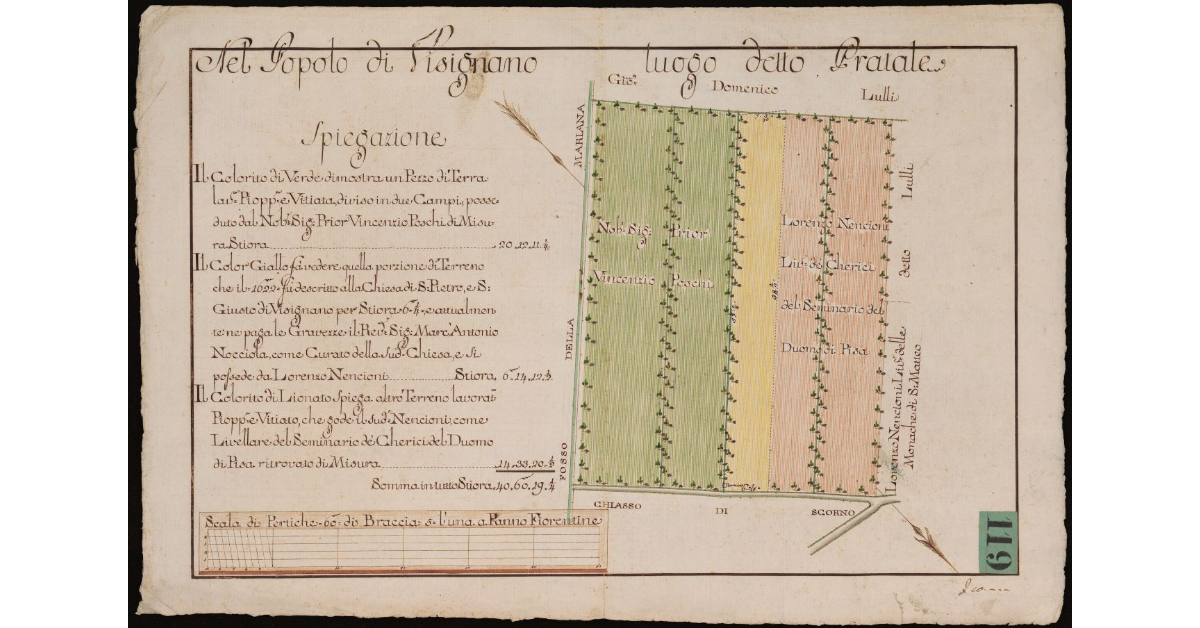 Nel Popolo di Visignano luogo detto Pratale
Spiegazione
Il Colorito di Verde dimostra un Pezzo di Terra
lau: Piopp: e Vitiata, diviso in due Campi, posse
duto dal Nob: Sig: Prior Vincenzio Poschi di Misu
ra Stiora
Il Color Giallo fà vedere quella porzione di Terreno
che il 1622 fù descritto alla Chiesa di S: Pietro, e S:
Giusto di Visignano per Stiora 6 e attualmen
te ne paga le Gravezze il Red: Sig: Marc'Antonio
Nocciola, come Curato della Sud: Chiesa, e si
possede da Lorenzo Nencioni Stiora, 6. 14. 12
Il Colorito di Lionato Spiega altro Terreno lavorat:
Piopp: e Vitiato, che gode il sud: Nencioni, come
Livellare del Seminario dé Cherici del Duomo
di Pisa ritrovato di Misura 14. 33. 20
Somma in tutto Stiora, 40. 60. 19
Scala di Pertiche 60: di Braccia: 5: l'una a Panno Fiorentine
Gio: Domenico Lulli
MARIANA
DELLA
FOSSO
Nob: Sig: Prior
Vincenzio Poschi
Lorenzo Nencioni
Liv: de Cherici
del Seminario del
Duomo di Pisa
Lulli
detto
Lorenzo Nencioni Liv: delle
Monache di S: Matteo
CHIASSO DI SCORNO
119